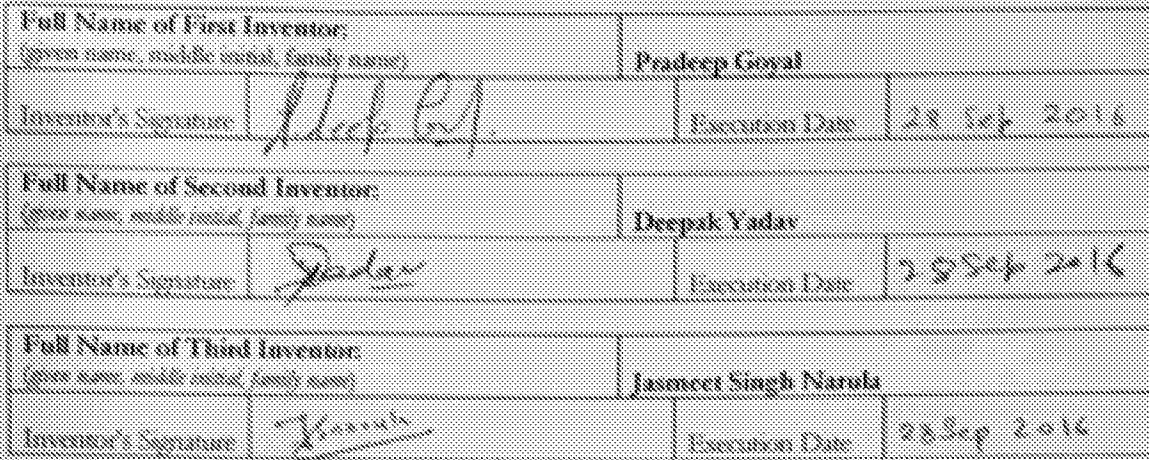 Full Name of First Inventor:
(given name, middle initial, family name)
Pradeep Goyal
Inventor's Signature
Execution Date
28 Sep 2016
Full Name of Second Inventor:
(given name, middle initial, family name)
Deepak Yadav
Inventor's Signature
Yadav
Execution Date
28 Sep 2016
Full Name of Third Inventor:
(given name, middle initial, family name)
Jasmeet Singh Narula
Inventor's Signature
Execution Date
28 Sep 2016